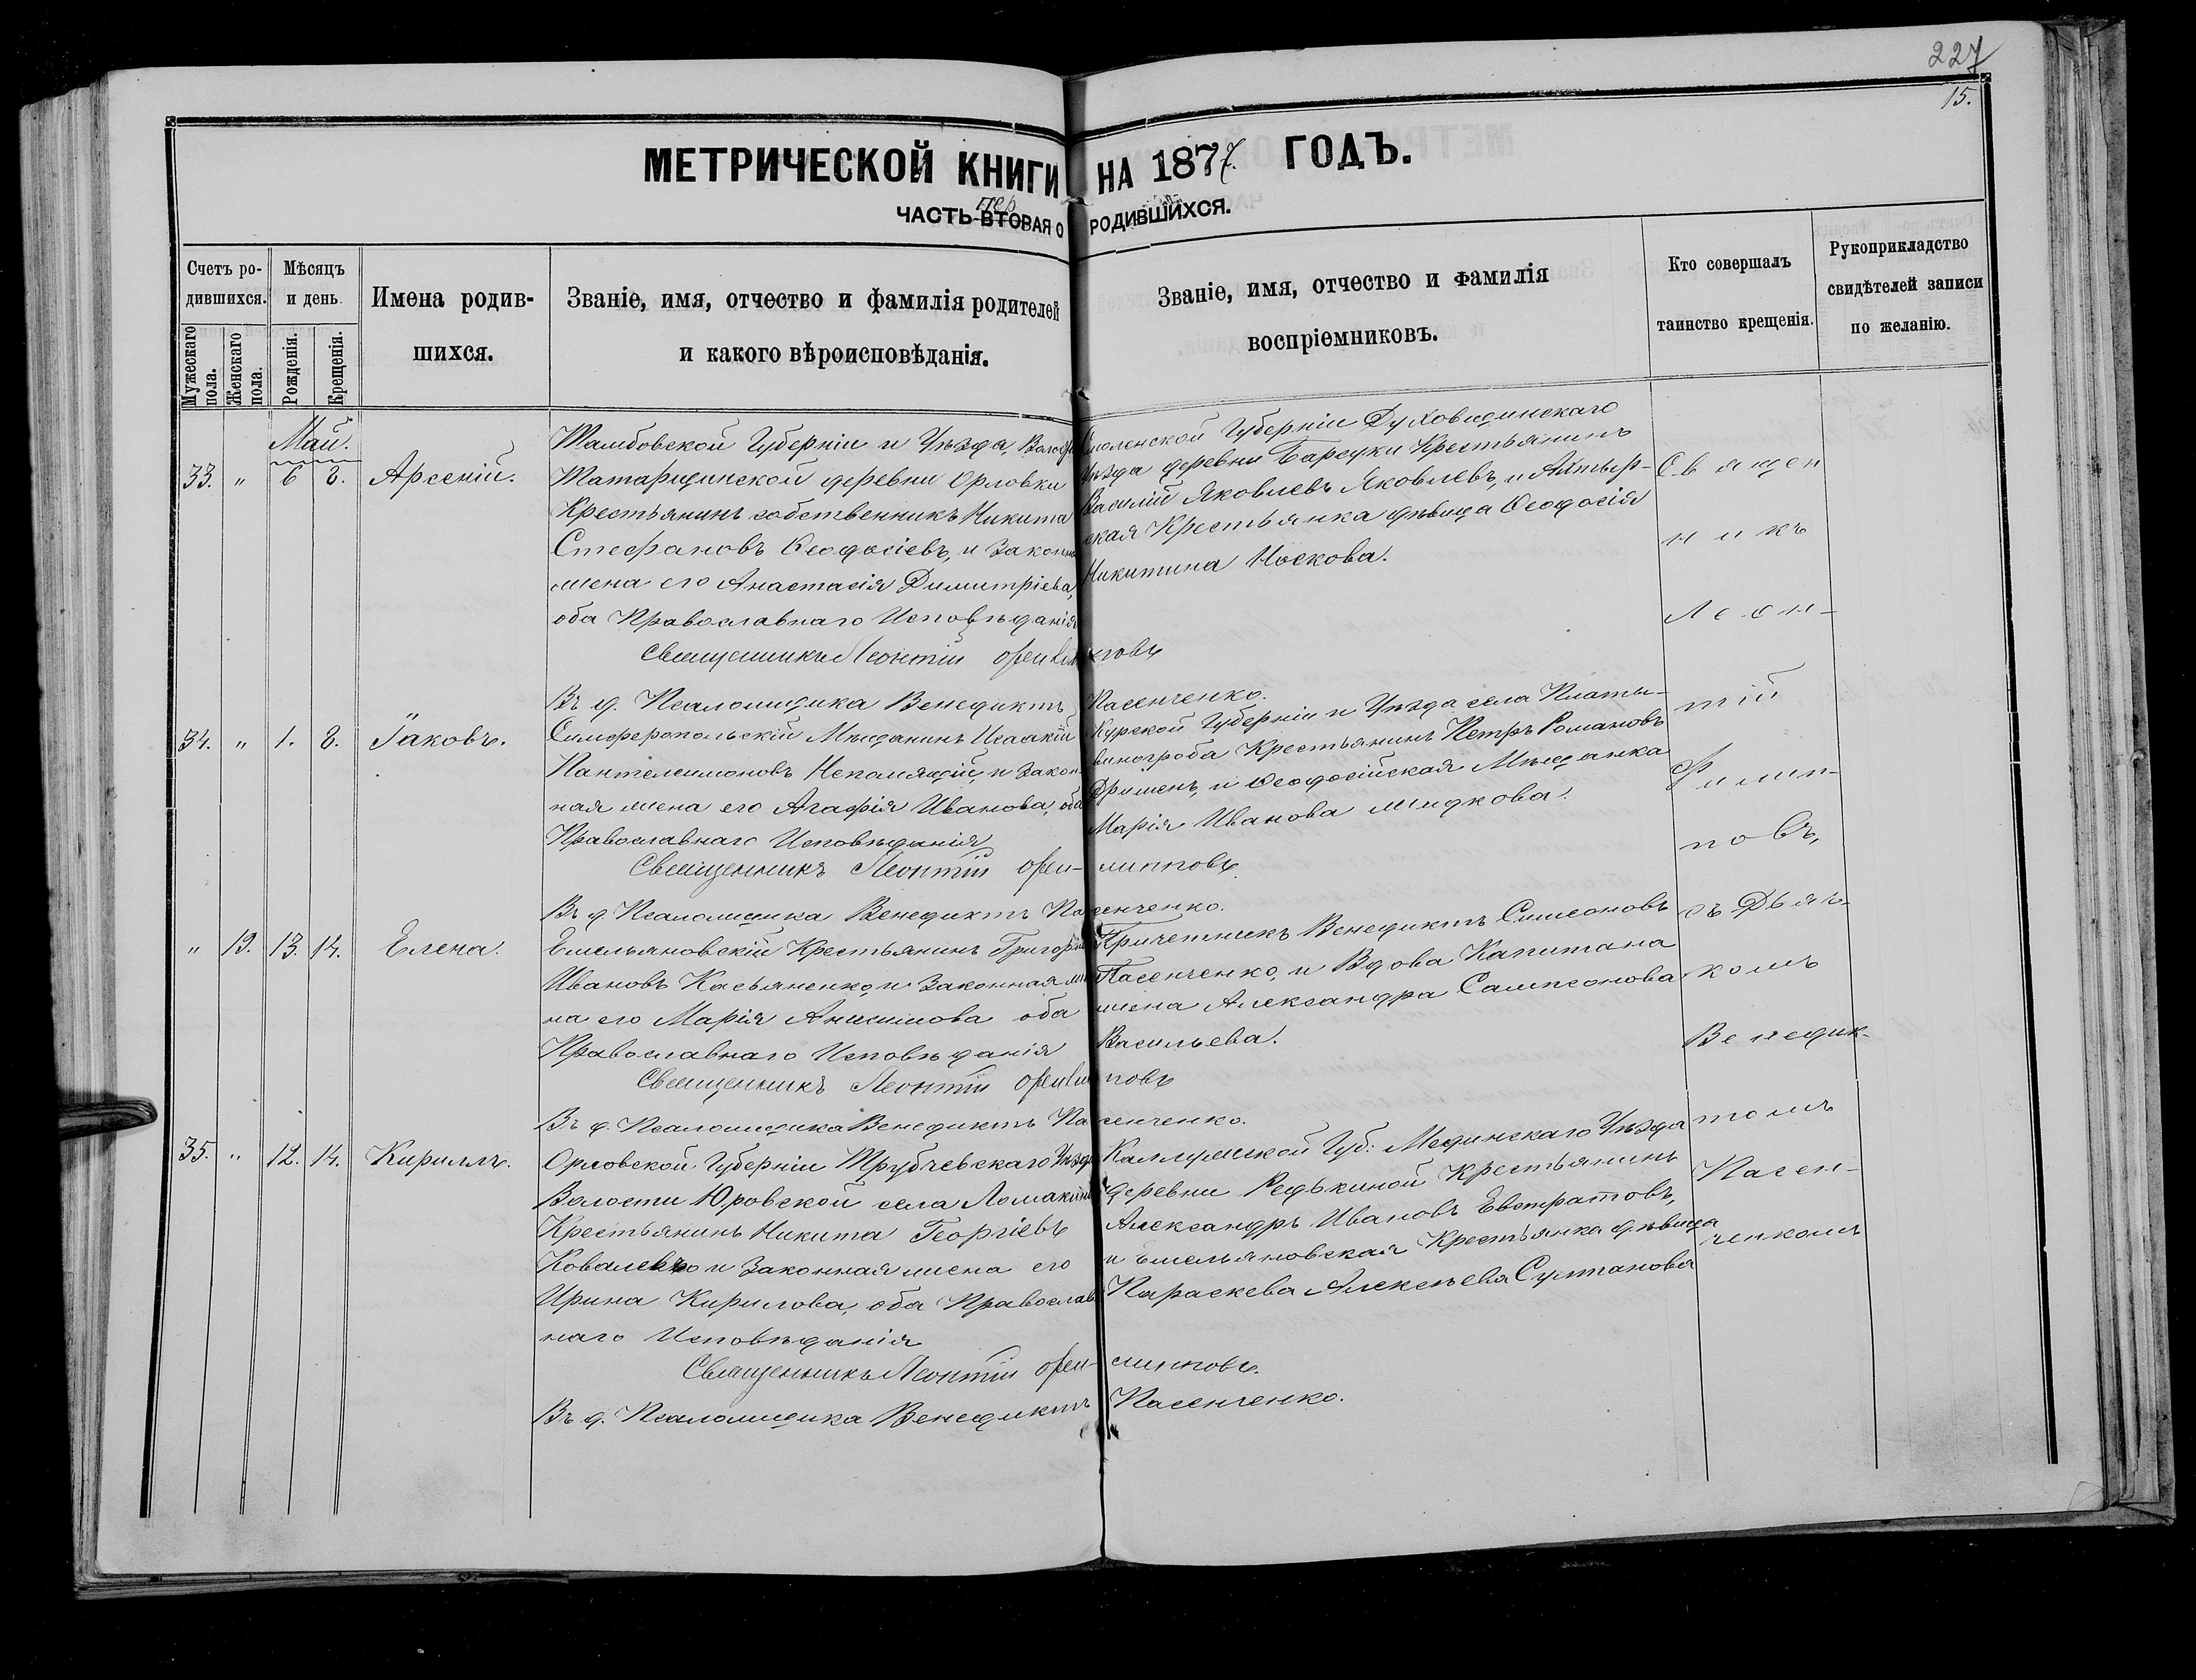 227
15.
МЕТРИЧЕСКОЙ КНИГИ НА 1877. ГОДЪ.
пер
ЧАСТЬ ВТОРАЯ О РОДИВШИХСЯ.
Счетъ родившихся.
Мужескаго пола.
Женскаго пола.
Мѣсяцъ и день.
Рожденія.
Крещенія.
Имена родившихся.
Званіе, имя, отчество и фамилія родителей
и какого вѣроисповѣданія.
Званіе, имя, отчество и фамилія
воспріемниковъ.
Кто совершалъ
таинство крещенія.
Рукоприкладство
свидѣтелей записи
по желанію.
Май.
33. " 6 8. Арсеній.
Тамбовской Губерніи и Уѣзда,
Татарщинской деревни Орловки
Крестьянинъ собственникъ Никита
Стефановъ Ѳеодосіевъ, и законна
жена его Анастасія Димитріева,
оба Православнаго Исповѣданія
Смоленской Губерніи Духовщинскаго
Уѣзда деревни Барсуки Крестьянинъ
Василій Яковлевъ Яковлевъ, и Айтыр-
ская Крестьянка дѣвица Ѳеодосія
Никитина Носкова.
Священникъ Леонтій Филипповъ
Въ д. Псаломщика Венедиктъ Пасенченко.
34. " 1. 8. Іаковъ.
Симферопольскій Мѣщанинъ Исаакій
Пантелеимоновъ Непомящій, и закон-
ная жена его Агафія Иванова, оба
Православнаго Исповѣданія
Курской Губерніи и Уѣзда села Платы-
виногроба Крестьянинъ Петръ Романовъ
и Ѳеодосійская Мѣщанка
Марія Иванова Шидкова.
Священникъ Леонтій Фи- липповъ.
Въ д. Псаломщика Венедиктъ Пасенченко.
" 19. 13. 14. Елена.
Емельяновскій Крестьянинъ Григорій
Ивановъ Касьяненко, и Законная же
на его Марія Анисимова оба
Православнаго Исповѣданія
Причетникъ Венедиктъ Симеоновъ
Пасенченко, и Вдова Капитана
жена Александра Сампсонова
Васильева.
Священникъ Леонтій Филипповъ
Въ д. Псаломщика Венедиктъ Пасенченко.
35. " 12. 14. Кириллъ.
Орловской Губерніи Трубчевскаго Уѣзда
Волости Юровской села Ломакин
Крестьянинъ Никита Георгіевъ
и Законная жена его
Ирина Кирилова, оба Православ
наго Исповѣданія
Каллужской Губ: Мединскаго Уѣзда
деревни Редькиной Крестьянинъ
Александръ Ивановъ Евстратовъ,
и Емельяновская Крестьянка дѣвица
Параскева Алексѣева Султанова
Священникъ Леонтій Фи- липповъ.
Въ д. Псаломщика Венедиктъ Пасенченко.
Священ
никъ
Леон-
тій
Филип-
повъ,
съ Дьяч-
комъ
Венедик-
томъ
Пасен-
ченкомъ